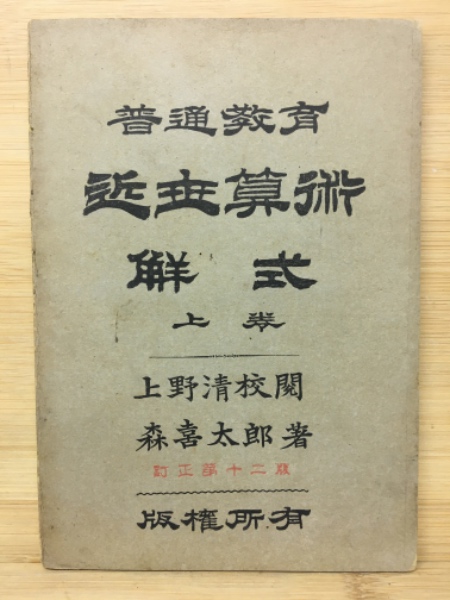 普通教育
近世算術
解式
上巻
上野清校閲
森喜太郎著
訂正第十二版
版權所有